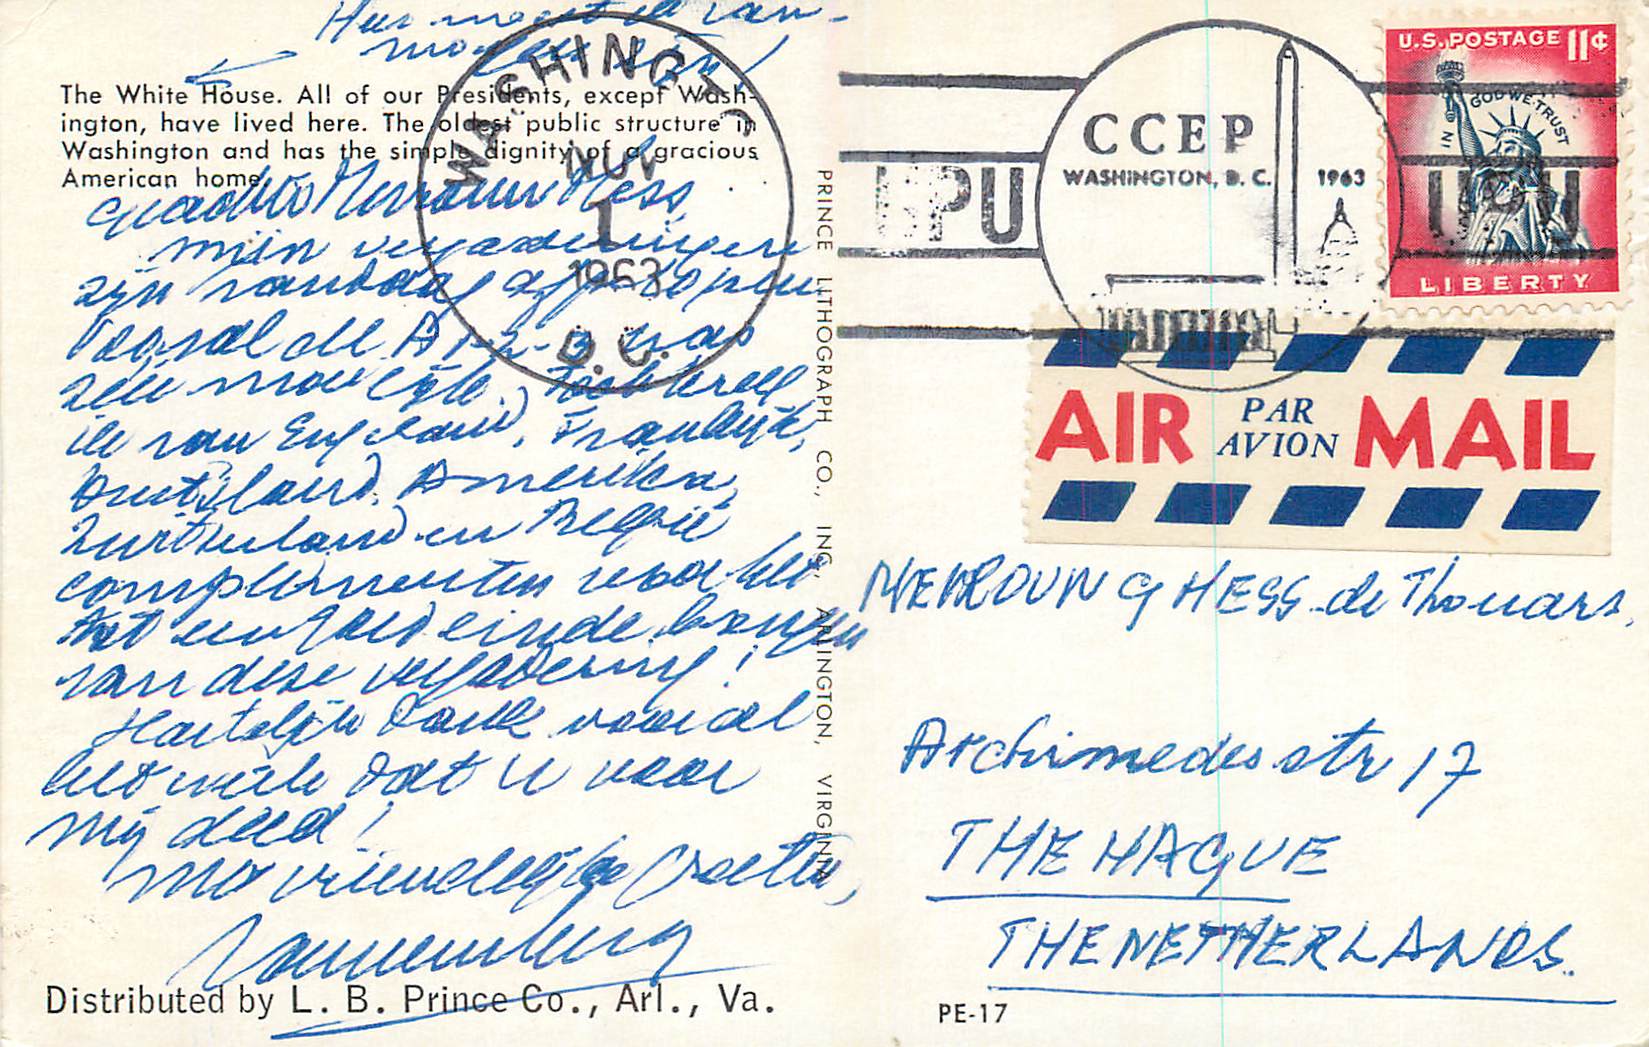 Hier moest ik van-
morgen zijn!
The White House. All of our Presidents, except Wash-
ington, have lived here. The oldest public structure in
Washington and has the simple dignity of a gracious
American home.
Mevrouw Hess
mijn vergaderingen
zijn vandaag afgelopen
Vooral de
zeer moeilijk.
ik van Engeland, Frankrijk,
Duitsland, Amerika,
Zwitserland en België
complimenten voor het
tot een goed einde brengen
van deze vergadering!
Hartelijk dank voor al
het vele dat u voor
mij deed!
Met vriendelijke groeten,
Distributed by L. B. Prince Co., Arl., Va.
PRINCE LITHOGRAPH CO., INC., ARLINGTON, VIRGINIA
WASHINGTON
NOV
1
1963
D.C.
CCEP
WASHINGTON, D. C. 1963
UPU
UPU
U.S. POSTAGE 11¢
IN GOD WE TRUST
LIBERTY
AIR PAR AVION MAIL
MEVROUW G HESS de Thouars.
Archimedesstr 17
THE HAGUE
THE NETHERLANDS.
PE-17